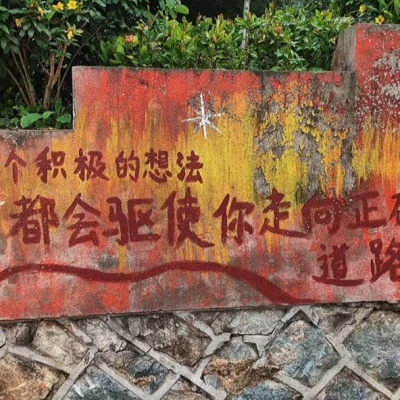 个积极的想法
都会驱使你走向正
道路